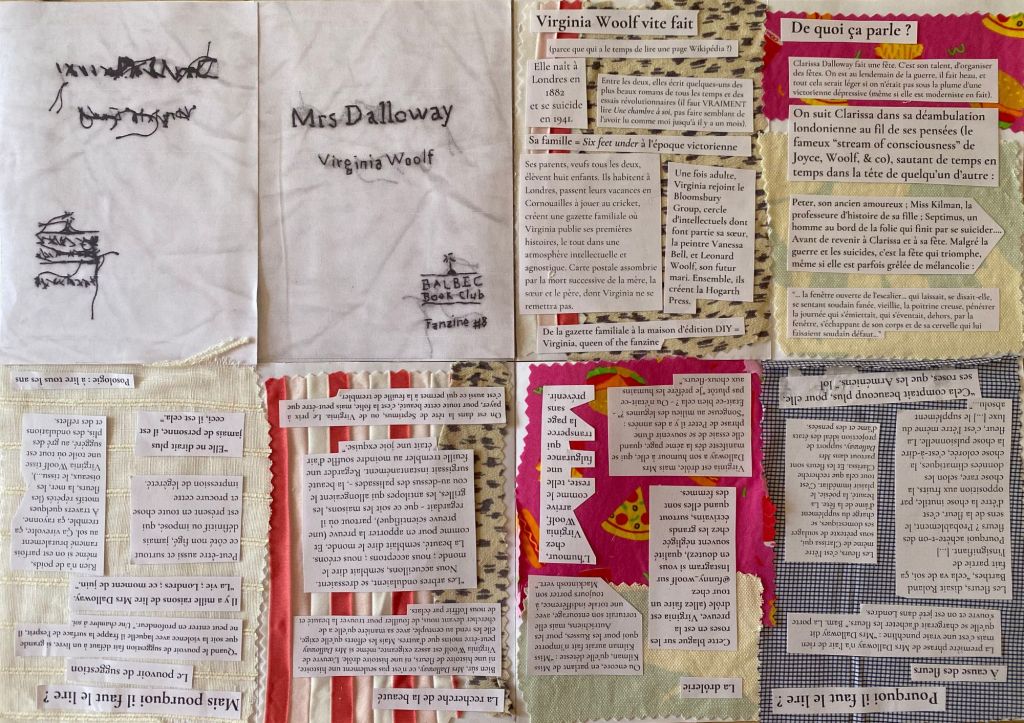 Mrs Dalloway
Virginia Woolf
BALBEC
Book Club
Fanzine #8
Virginia Woolf vite fait
(parce que qui a le temps de lire une page Wikipédia ?)
Elle naît à
Londres en
1882
et se suicide
en 1941.
Entre les deux, elle écrit quelques-uns des
plus beaux romans de tous les temps et des
essais révolutionnaires (il faut VRAIMENT
lire Une chambre à soi, pas faire semblant de
l'avoir lu comme moi jusqu'à il y a un mois).
Sa famille = Six feet under à l'époque victorienne
Ses parents, veufs tous les deux,
élèvent huit enfants. Ils habitent à
Londres, passent leurs vacances en
Cornouailles à jouer au cricket,
créent une gazette familiale où
Virginia publie ses premières
histoires, le tout dans une
atmosphère intellectuelle et
agnostique. Carte postale assombrie
par la mort successive de la mère, la
sœur et le père, dont Virginia ne se
remettra pas.
Une fois adulte,
Virginia rejoint le
Bloomsbury
Group, cercle
d'intellectuels dont
font partie sa sœur,
la peintre Vanessa
Bell, et Leonard
Woolf, son futur
mari. Ensemble, ils
créent la Hogarth
Press.
De la gazette familiale à la maison d'édition DIY =
Virginia, queen of the fanzine
De quoi ça parle ?
Clarissa Dalloway fait une fête. C'est son talent, d'organiser
des fêtes. On est au lendemain de la guerre, il fait beau, et
tout cela serait léger si on n'était pas sous la plume d'une
victorienne dépressive (même si elle est moderniste en fait).
On suit Clarissa dans sa déambulation
londonienne au fil de ses pensées (le
fameux "stream of consciousness" de
Joyce, Woolf, & co), sautant de temps en
temps dans la tête de quelqu'un d'autre :
Peter, son ancien amoureux ; Miss Kilman, la
professeure d'histoire de sa fille ; Septimus, un
homme au bord de la folie qui finit par se suicider....
Avant de revenir à Clarissa et à sa fête. Malgré la
guerre et les suicides, c'est la fête qui triomphe,
même si elle est parfois grêlée de mélancolie :
"... la fenêtre ouverte de l'escalier... qui laissait, se disait-elle,
se sentant soudain fanée, vieillie, la poitrine creuse, pénétrer
la journée qui s'émiettait, qui s'éventait, dehors, par la
fenêtre, s'échappant de son corps et de sa cervelle qui lui
faisaient soudain défaut..."
Pourquoi il faut le lire ?
A cause des fleurs
La première phrase de Mrs Dalloway n'a l'air de rien
mais c'est une vraie punchline : "Mrs Dalloway dit
qu'elle se chargerait d'acheter les fleurs". Bam. La porte
s'ouvre et on est jeté dans Londres.
Les fleurs, disait Roland
Barthes, "cela va de soi, ça
fait partie de
l'insignifiant. [...]
Pourquoi achète-t-on des
fleurs ? Probablement, le
sens de la fleur, c'est
d'être la chose inutile, par
opposition aux fruits, la
chose rare, selon les
données climatiques, la
chose colorée, c'est-à-dire
la chose pulsionnelle. La
fleur, c'est le terme même du
luxe. [...] le supplément
absolu."
Les fleurs, c'est l'être
même de Clarissa, qui
sous prétexte de soulager
ses domestiques, se
charge du supplément
d'âme de la fête. La
beauté, la poésie, le
plaisir immédiat. C'est
tout cela que recherche
Clarissa. Et les fleurs sont
partout dans Mrs
Dalloway, support de
projection idéal des états
d'âme et des pensées.
"Cela comptait beaucoup plus, pour elle,
ses roses, que les Arméniens," lol
La drôlerie
Ou encore, en parlant de Miss
Kilman, qu'elle déteste : "Miss
Kilman aurait fait n'importe
quoi pour les Russes, pour les
Autrichiens, mais elle
torturait son entourage, avec
une mine indifférente, à
toujours porter son
Mackintosh vert."
Cette blague sur les
roses en est la
preuve, Virginia est
drôle (allez faire un
tour chez
@funny_woolf sur
Instagram si vous
en doutez), qualité
souvent négligée
chez les grands
écrivains, surtout
quand elles sont
des femmes.
L'humour,
chez
Virginia
Woolf,
arrive
comme le
reste, telle
une
fulgurance
qui
transperce
la page
sans
prévenir.
Virginia est drôle, mais Mrs
Dalloway a son humour à elle, qui se
manifeste par sa liberté de ton, quand
elle essaie de se souvenir d'une
phrase de Peter il y a des années :
"Songeuse au milieu des légumes ?" -
était-ce bien cela ? - ou n'était-ce
pas plutôt "Je préfère les humains
aux choux-fleurs."
La recherche de la beauté
Bien sûr, Mrs Dalloway, ce n'est pas seulement une histoire,
ni une histoire de fleurs, ni une histoire drôle. L'œuvre de
Virginia Woolf est assez exigeante, même si Mrs Dalloway l'est
peut-être moins que d'autres. Mais les efforts qu'elle exige,
elle les rend au centuple, avec sa manière qu'elle a de
chercher devant nous, de fouiller pour trouver la beauté et
de nous l'offrir par éclats.
"Les arbres ondulaient, se dressaient.
Nous accueillons, semblait dire le
monde ; nous acceptons ; nous créons.
La beauté, semblait dire le monde. Et
comme pour en apporter la preuve (une
preuve scientifique), partout où il
regardait - que ce soit les maisons, les
grilles, les antilopes qui allongeaient le
cou au-dessus des palissades - la beauté
surgissait instantanément. Regarder une
feuille trembler au moindre souffle d'air
était une joie exquise."
On est dans la tête de Septimus, ou de Virginia. Le prix à
payer, pour toute cette beauté, c'est la folie, mais peut-être que
c'est aussi ce qui permet à la feuille de trembler.
Mais pourquoi il faut le lire ?
Le pouvoir de suggestion
"Quand le pouvoir de suggestion fait défaut à un livre, si grande
que soit la violence avec laquelle il frappe la surface de l'esprit, il
ne peut entrer en profondeur." Une chambre à soi.
Il y a mille raisons de lire Mrs Dalloway.
"La vie ; Londres ; ce moment de juin."
Rien n'a de poids,
même si on est parfois
rarement brutalement
au sol. Ça virevolte, ça
tremble, ça rayonne.
A travers quelques
motifs répétés (les
fleurs, la mer, les
oiseaux, le tissu...),
Virginia Woolf tisse
une toile où tout est
suggéré, au gré des
plis, des ondulations
et des reflets.
Peut-être aussi et surtout
ce côté non figé, jamais
définitif ou imposé, qui
est présent en toute chose
et procure cette
impression de légèreté.
"Elle ne dirait plus
jamais de personne, il est
ceci, il est cela."
Posologie : à lire tous les ans